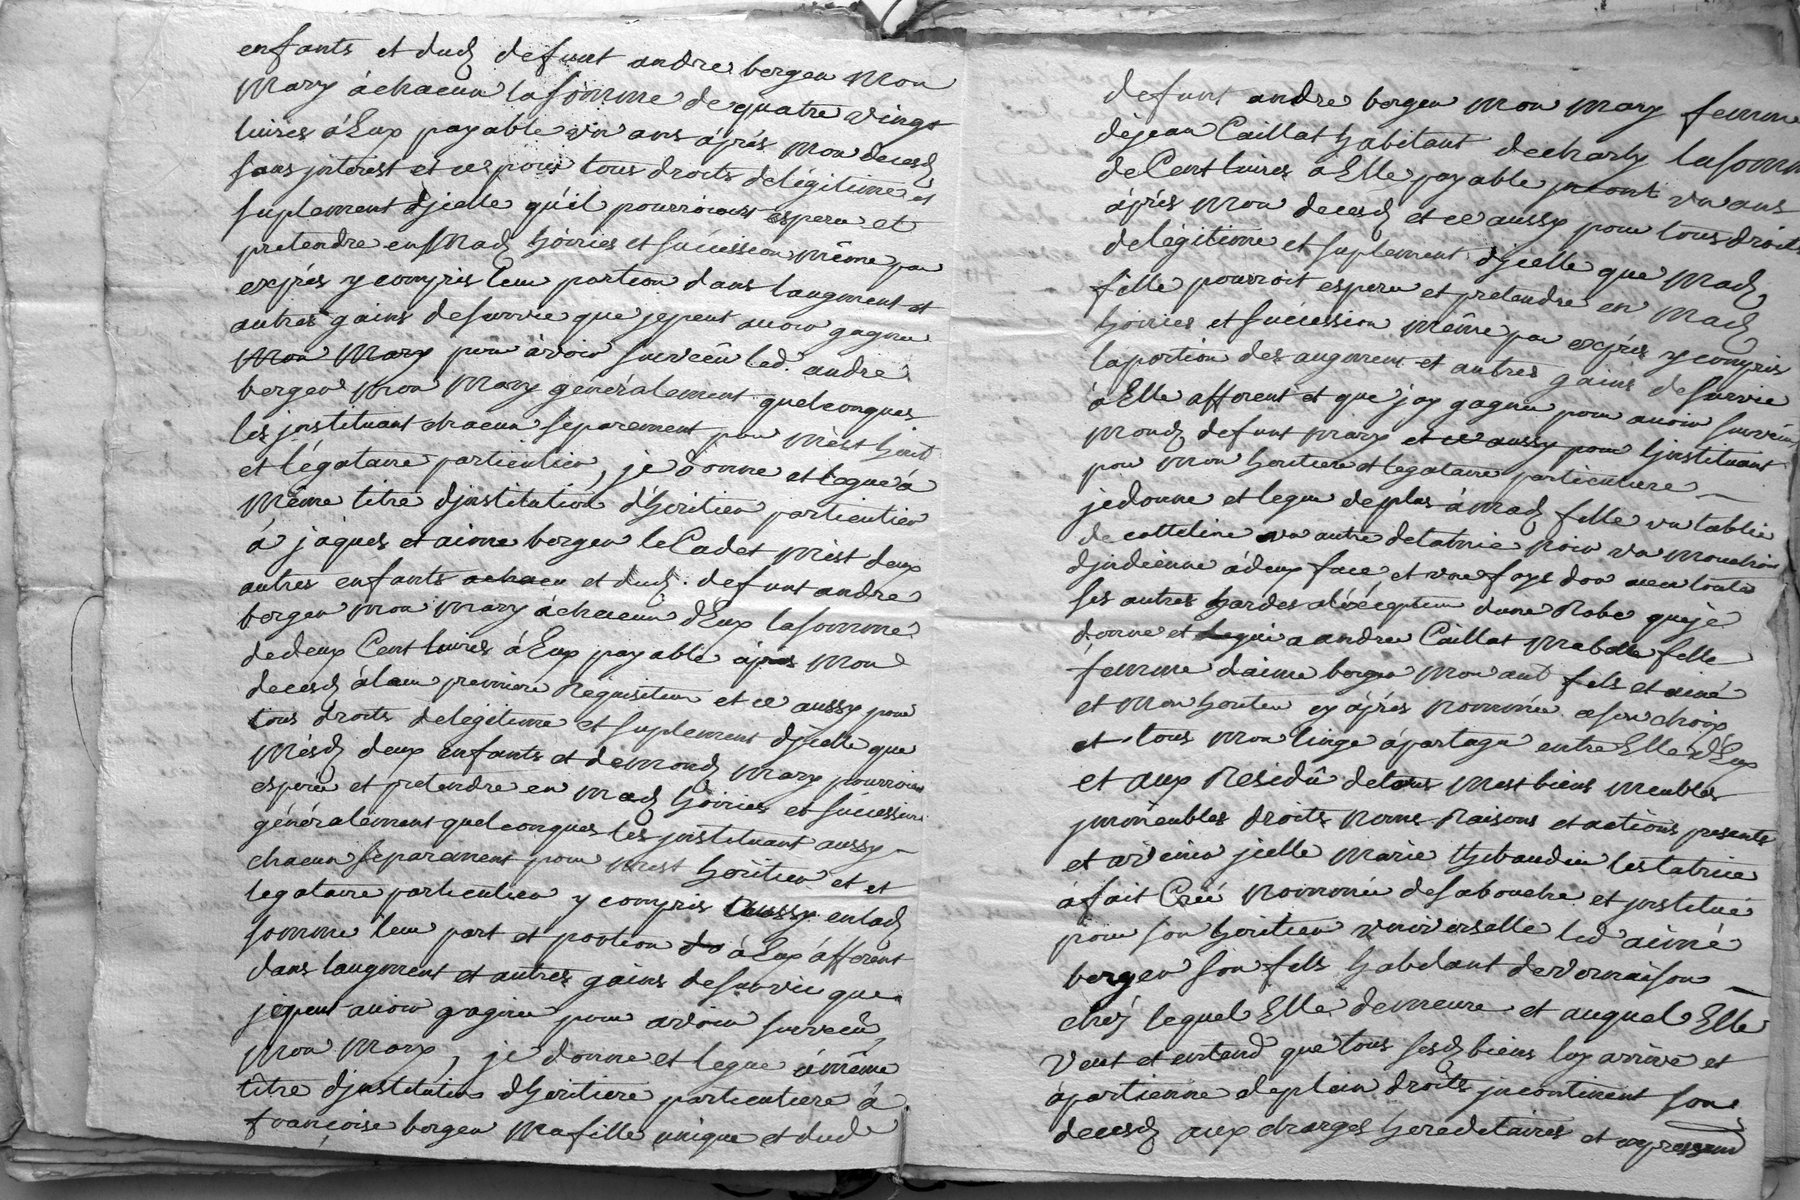 enfants et dud defunt andre berger mon
Mary á chacun la somme de quatre vingt
livres á Eux payable un ans áprés mon decesd
sans jnterest et ce pour tous droits delégitime et
suplement djcelle qu'il pourroient esperer et
pretendre en Mad hoiries et sucession même par
exprés y compris leur portion dans laugment et
autres gains desurvie que je peut avoir gagner
Mon Mary pour ávoir survecû led. andre
berger mon Mary generalement quelconques
les jnstituant chacun séparement pour mest herit
et légataire particulier, je donne et legue á
Même titre djnstitution d'heritier particulier
á jaques et aimé berger le Cadet mest deux
autres enfants et dud. defunt andre
berger mon mary á chacun d'Eux la somme
dedeux Cent livres á Eux payable áprés mon
decesd á leur premiere Requisition et ce aussy pour
tous droits delegitime et suplement djcelle que
mesd deux enfants et demond mary pourroient
esperer et pretendre en mad hoiries et sucession
généralement quelconques les jnstituant aussy
chacun séparement pour mest heritier et et
legataire particulier y compris aussy en lad
somme leur part et portion á Eux áfferent
dans laugment et autres gains desurvie que
je peut avoir gagner pour avoir survecû
Mon Mary, je donne et legue á même
titre djnstitution dheritiere particuliere á
francoise berger Ma fille unique et dud
defunt andre berger mon mary femme
dejean Caillat habitant decharly la somme
de Cent livres á Elle payable un ans
áprés mon decesd et ce aussy pour tous droits
delégitime et suplement djcelle que Mad
fille pourroit esperer et pretendre en Mad
hoiries et sucession même par exprés y compris
la portion des augment et autres gains desurvie
á Elle afferent et que j'ay gagner pour avoir survécu
Mond defunt mary et ce aussy pour l'jnstituant
pour mon heritiere et legataire particuliere
je donne et legue deplus á mad fille un tablié
de cotteline un autre noir un mouchoir
djndienne á deux face et une avec toute
ses autres hardes á l'éxéption dune Robe que je
donne et legue a andrée Caillat Ma belle fille
femme d'aimé berger mon fils et ainé
et mon heritier cy áprés nommée a son choix
et tous mon linge á partager entre Elle d'Eux
et aux Residû detous mest biens meubles
jmmeubles droits noms Raisons et actions presents
et avenir jcelle Marie thibaudier testatrice
á fait Créé nommée desabouche et jnstitué
pour son heritier universelle led aimé
berger son fils habitant devernaison
chéz lequel Elle demeure et auquel Elle
Veut et entend que tous sesd biens luy arrive et
ápartienne deplein droits jncontinent son
decesd aux charges hereditaires et expressem